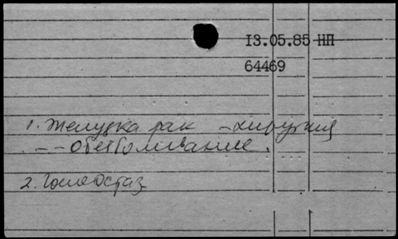 13.05.85 НП
64469
1. Желудка рак – хирургия
-- – Обезболивание.
2. Гомеостаз